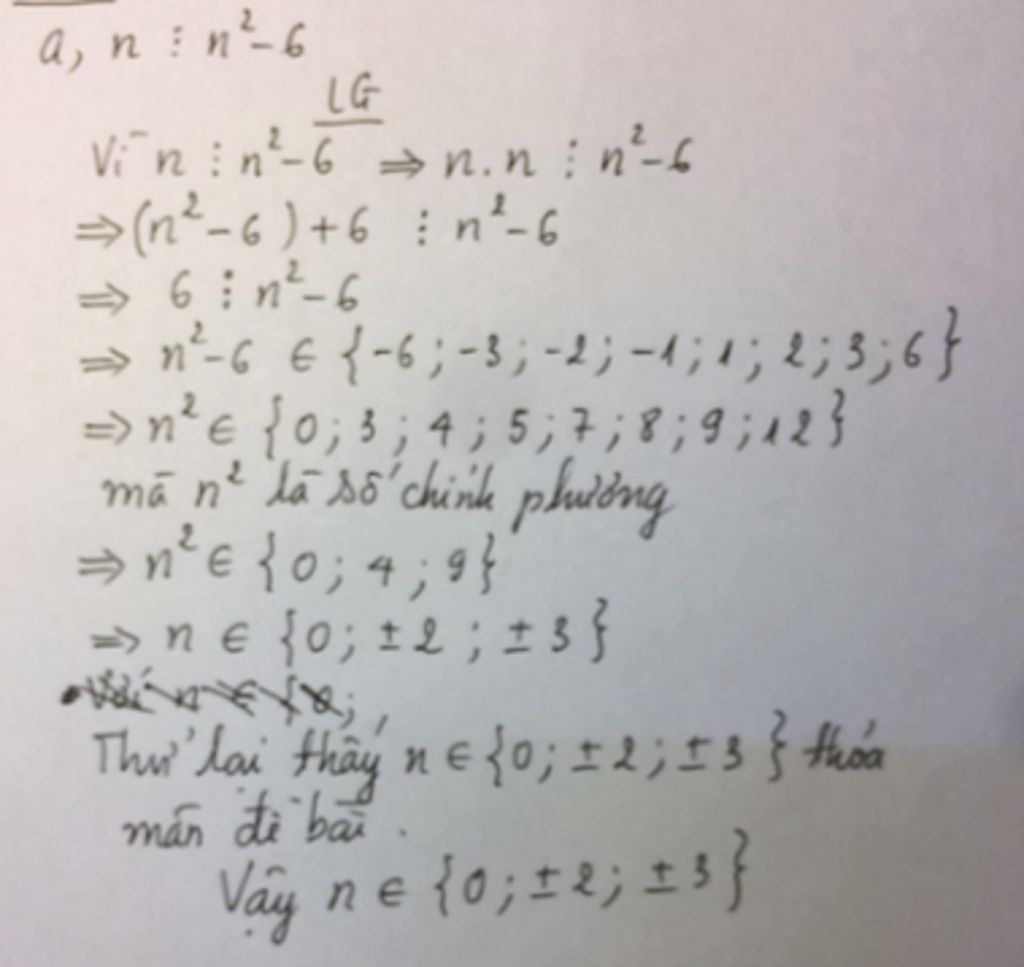 a, n ⋮ n²-6
LG
Vì n ⋮ n²-6 ⇒ n.n ⋮ n²-6
⇒(n²-6)+6 ⋮ n²-6
⇒ 6 ⋮ n²-6
⇒ n²-6 ∈ {-6;-3;-2;-1;1;2;3;6}
⇒ n² ∈ {0;3;4;5;7;8;9;12}
mà n² là số chính phương
⇒ n² ∈ {0;4;9}
⇒ n ∈ {0;±2;±3}
Thử lại thấy n ∈ {0;±2;±3} thỏa
mãn đề bài.
Vậy n ∈ {0;±2;±3}